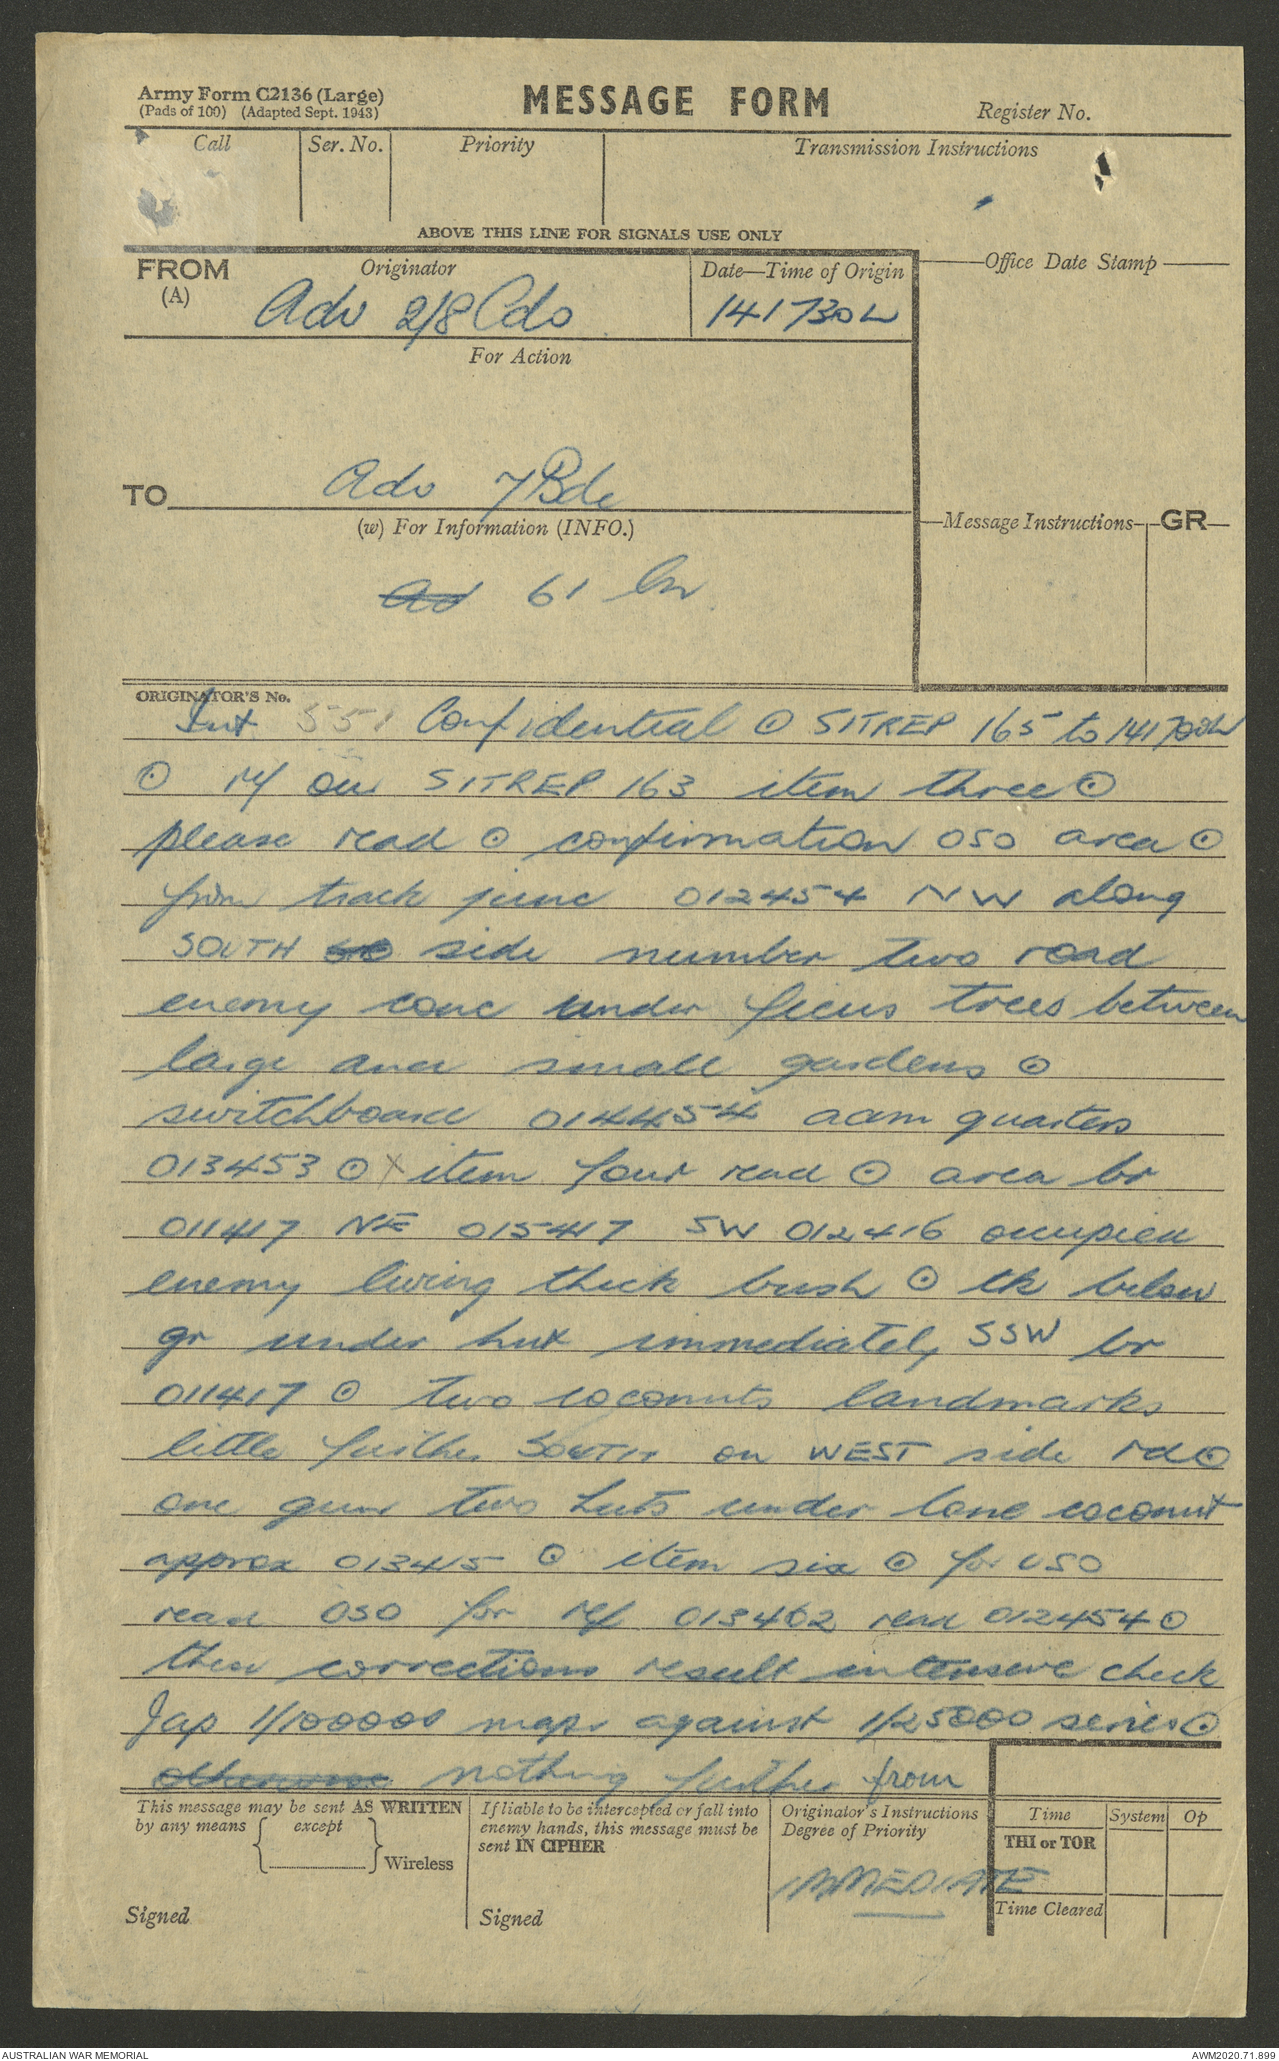 Army Form C2136 (Large)
(Pads of 100) (Adapted Sept. 1943)
MESSAGE FORM
Register No.
Call
Ser. No.
Priority
Transmission Instructions
ABOVE THIS LINE FOR SIGNALS USE ONLY
FROM
(A)
Originator
Adv 2/8 Cdo
Date—Time of Origin
141730L
Office Date Stamp
For Action
TO
Adv 7 Bde
(w) For Information (INFO.)
61 Bn
Message Instructions
GR
ORIGINATOR'S No.
Int 551 Confidential ⊙ SITREP 165 to 141700L
⊙ ref our SITREP 163 item three ⊙
please read ⊙ confirmation OSO area ⊙
from track junc 012454 NW along
SOUTH side number two road
enemy conc under ficus trees between
large and small gardens ⊙
switchboard 014454 adm quarters
013453 ⊙ X item four read ⊙ area br
011417 NE 015417 SW 012416 occupied
enemy living thick bush ⊙ tk below
gr under hut immediately SSW br
011417 ⊙ two coconuts landmarks
little further SOUTH on WEST side rd ⊙
one gun two huts under lone coconut
approx 013415 ⊙ item six ⊙ for USO
read OSO for ref 013462 read 012454 ⊙
these corrections result intensive check
Jap 1/100000 maps against 1/25000 series ⊙
otherwise nothing further from
This message may be sent AS WRITTEN
by any means except
Wireless
Signed
If liable to be intercepted or fall into
enemy hands, this message must be
sent IN CIPHER
Signed
Originator's Instructions
Degree of Priority
IMMEDIATE
Time
System
Op
THI or TOR
Time Cleared
AUSTRALIAN WAR MEMORIAL
AWM2020.71.899